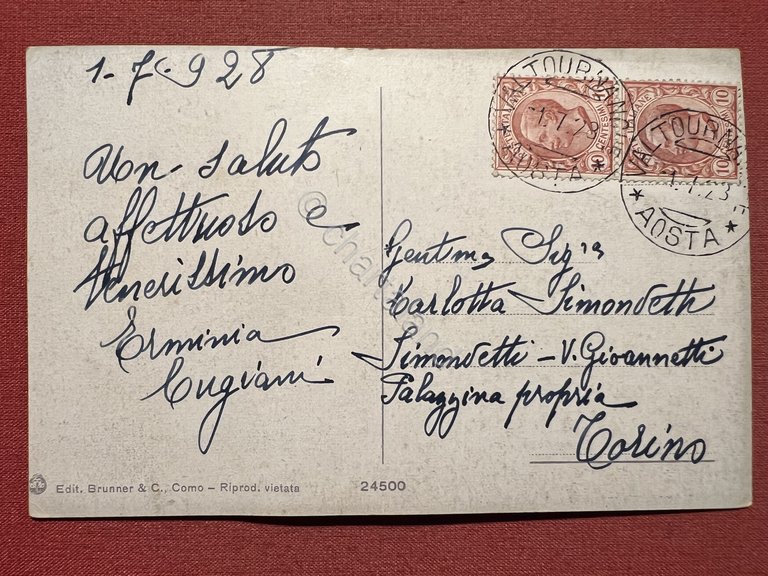 1-7-928
Un saluto
affettuoso e
tenerissimo
Erminia
Cugiani
Gentma Sigra
Karlotta Simondetti
Simondetti - V. Giovannetti
Palazzina propria
Torino
VALTOURNA
1.7.28
* AOSTA *
VALTOURNA
1.7.28
* AOSTA *
10
10
CENTES
Edit. Brunner & C., Como – Riprod. vietata
24500